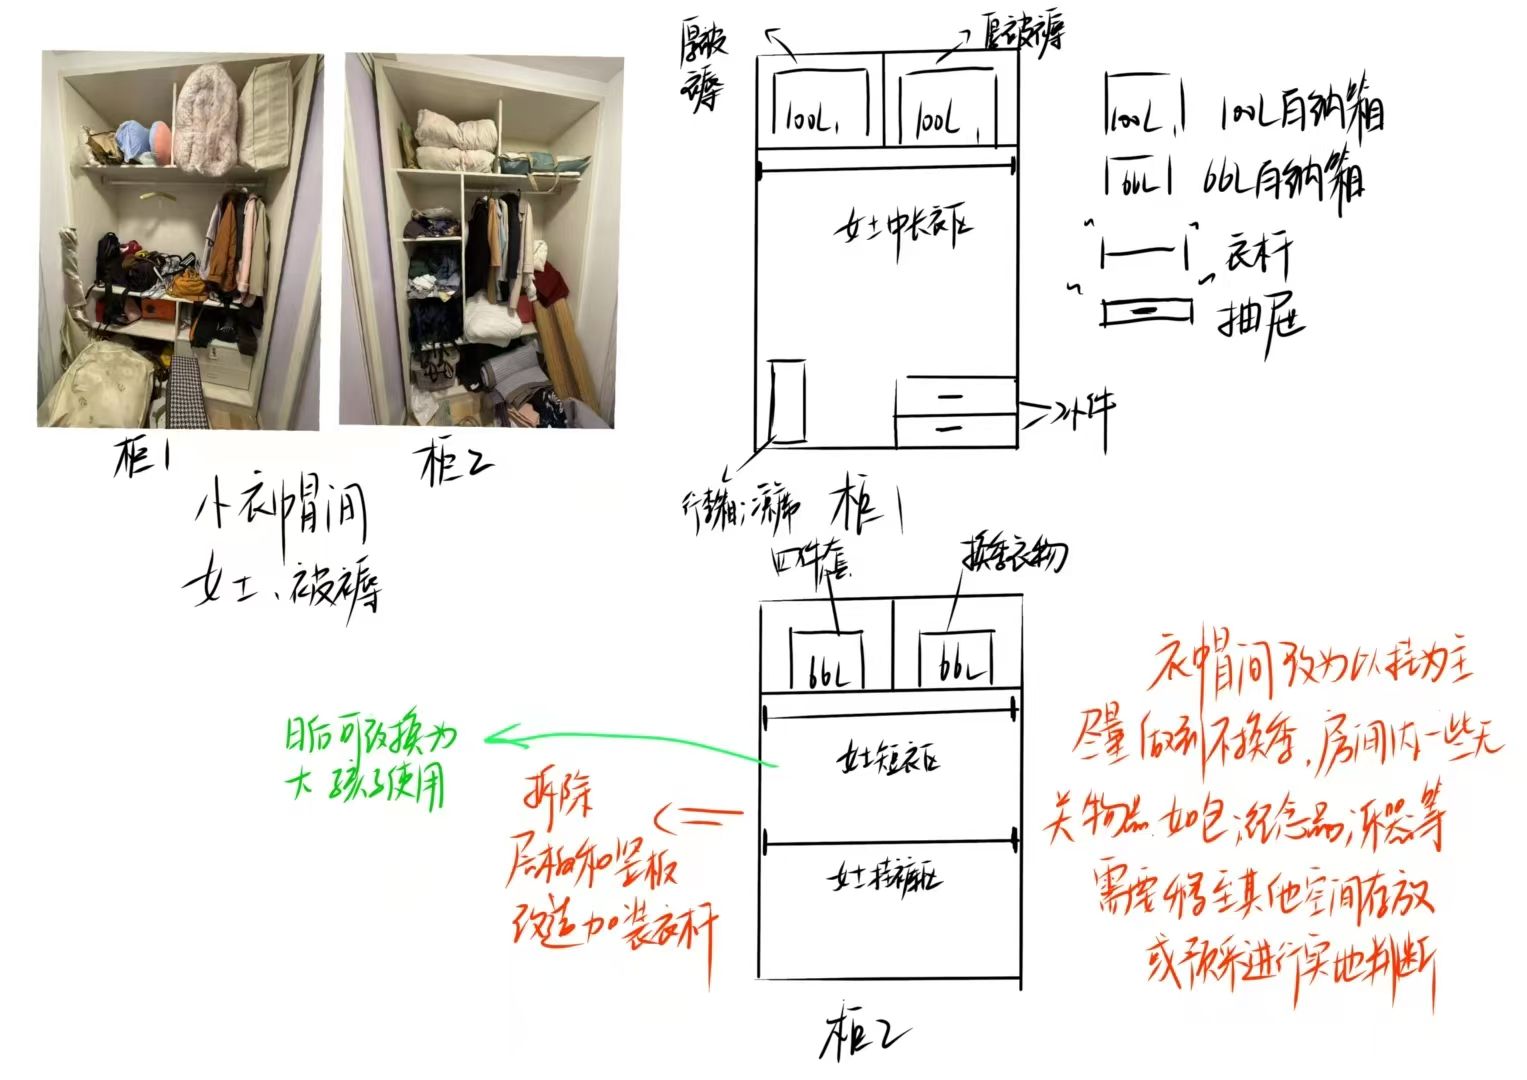 柜1
柜2
小衣帽间
女士、被褥
厚被
褥
厚被褥
100L
100L
女士中长衣区
小件
行李箱、凉席
柜1
100L
100L白纳箱
66L
66L白纳箱
衣杆
抽屉
四件套
换季衣物
66L
66L
女士短衣区
女士挂裤区
柜2
日后可改换为
大孩子使用
拆除
层板和竖板
改造加装衣杆
衣帽间改为以挂为主
尽量做到不换季,房间内一些无
关物品,如包、纪念品、乐器等
需要移至其他空间存放
或预采进行实地判断